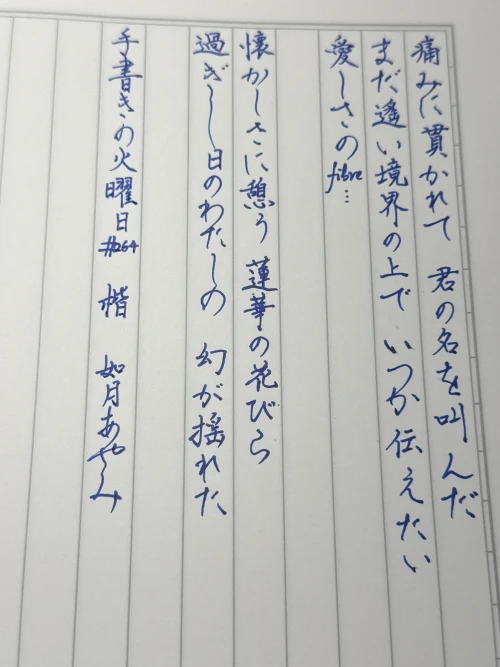 痛みに貫かれて 君の名を叫んだ
まだ遙い境界の上で いつか伝えたい
愛しさのfibre…
懐かしさに憩う 蓮華の花びら
過ぎし日のわたしの 幻が揺れた
手書きの火曜日#264 楷 如月あやみ